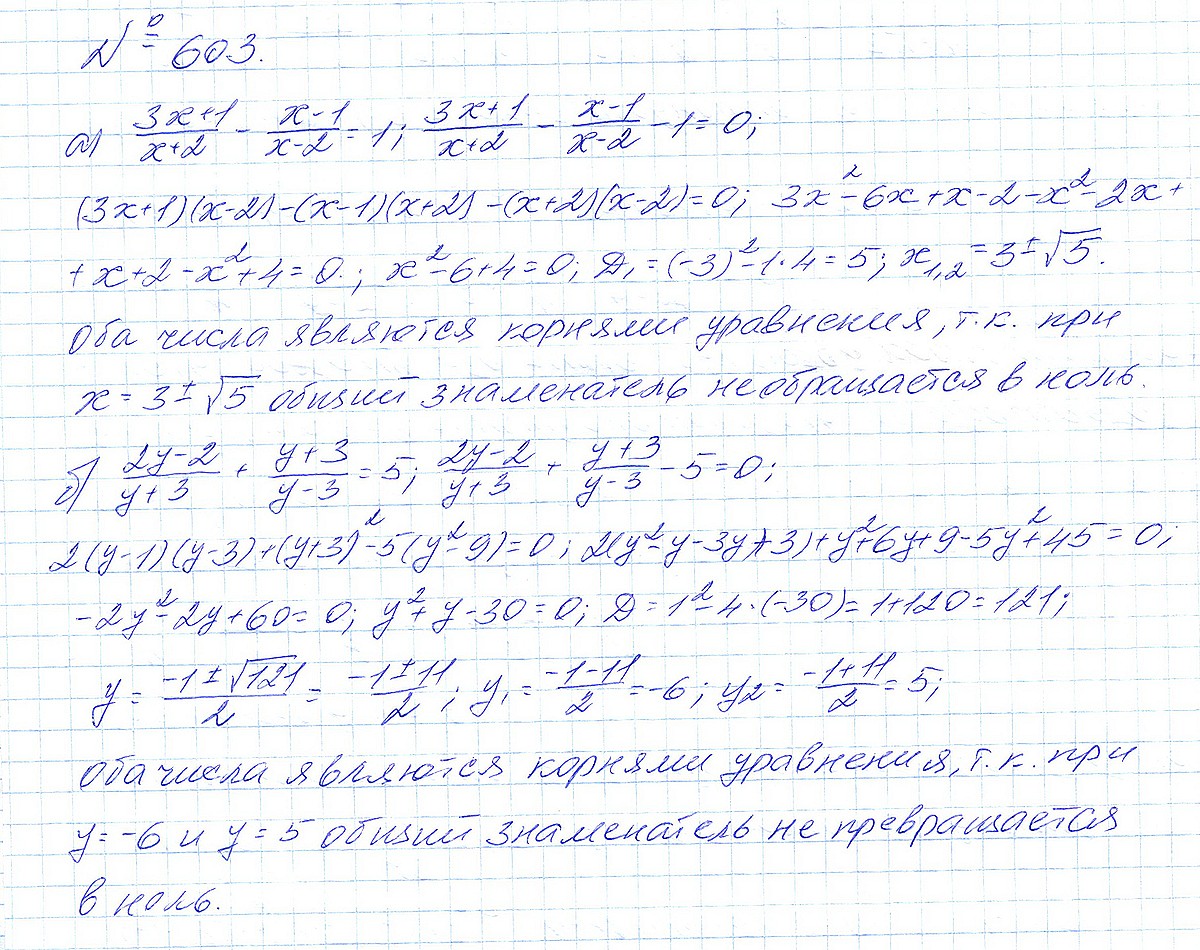 № 603.
а) (3x+1)/(x+2) - (x-1)/(x-2) = 1; (3x+1)/(x+2) - (x-1)/(x-2) - 1 = 0;
(3x+1)(x-2)-(x-1)(x+2)-(x+2)(x-2)=0; 3x²-6x+x-2-x²-2x+
+x+2-x²+4=0.; x²-6+4=0; Д₁=(-3)²-1·4=5; x₁,₂=3±√5.
оба числа являются корнями уравнения, т.к. при
x = 3±√5 общий знаменатель не обращается в ноль.
б) (2y-2)/(y+3) + (y+3)/(y-3) = 5; (2y-2)/(y+3) + (y+3)/(y-3) - 5 = 0;
2(y-1)(y-3)+(y+3)²-5(y²-9)=0; 2(y²-y-3y+3)+y²+6y+9-5y²+45=0;
-2y²-2y+60=0; y²+y-30=0; Д=1²-4·(-30)=1+120=121;
y = (-1±√121)/2 = (-1±11)/2; y₁ = (-1-11)/2 = -6; y₂ = (-1+11)/2 = 5;
оба числа являются корнями уравнения, т.к. при
y=-6 и y=5 общий знаменатель не превращается
в ноль.